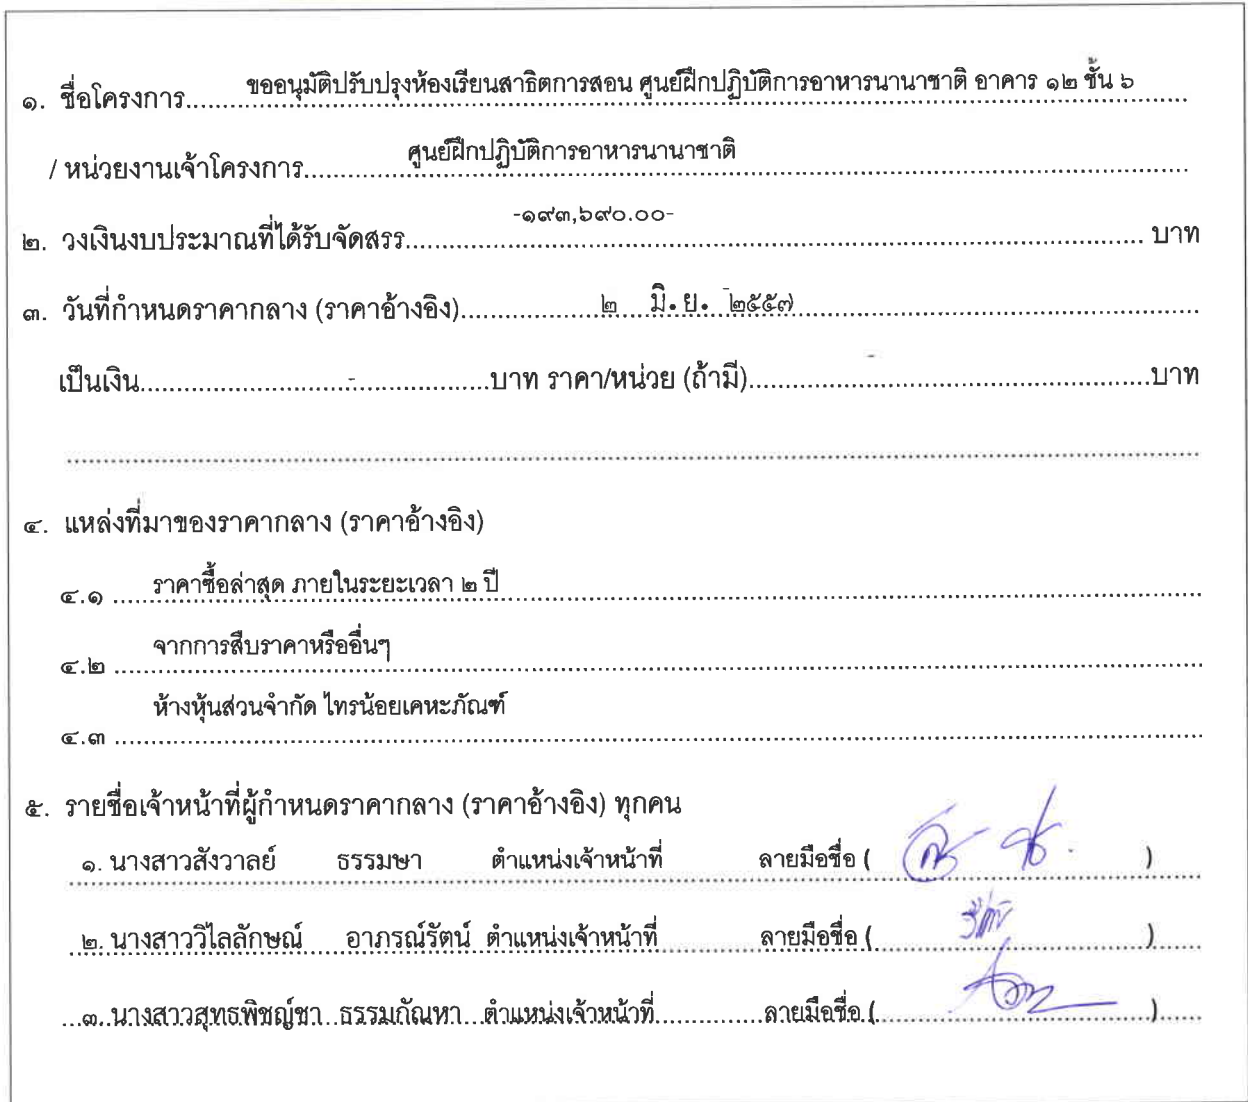 ๑. ชื่อโครงการ.....ขออนุมัติปรับปรุงห้องเรียนสาธิตการสอน ศูนย์ฝึกปฏิบัติการอาหารนานาชาติ อาคาร ๑๒ ชั้น ๖
/ หน่วยงานเจ้าโครงการ.....ศูนย์ฝึกปฏิบัติการอาหารนานาชาติ
๒. วงเงินงบประมาณที่ได้รับจัดสรร.....-๑๙๓,๖๙๐.๐๐-..... บาท
๓. วันที่กำหนดราคากลาง (ราคาอ้างอิง).....๒ มิ.ย. ๒๕๕๗
เป็นเงิน.....-.....บาท ราคา/หน่วย (ถ้ามี).....-.....บาท
๔. แหล่งที่มาของราคากลาง (ราคาอ้างอิง)
๔.๑ .....ราคาซื้อล่าสุด ภายในระยะเวลา ๒ ปี
๔.๒ .....จากการสืบราคาหรืออื่นๆ
๔.๓ .....ห้างหุ้นส่วนจำกัด ไทรน้อยเคหะภัณฑ์
๕. รายชื่อเจ้าหน้าที่ผู้กำหนดราคากลาง (ราคาอ้างอิง) ทุกคน
๑. นางสาวสังวาลย์ ธรรมษา ตำแหน่งเจ้าหน้าที่ ลายมือชื่อ ( )
๒. นางสาววิไลลักษณ์ อาภรณ์รัตน์ ตำแหน่งเจ้าหน้าที่ ลายมือชื่อ ( )
๓. นางสาวสุทธพิชญ์ชา ธรรมกัณหา ตำแหน่งเจ้าหน้าที่ ลายมือชื่อ ( )